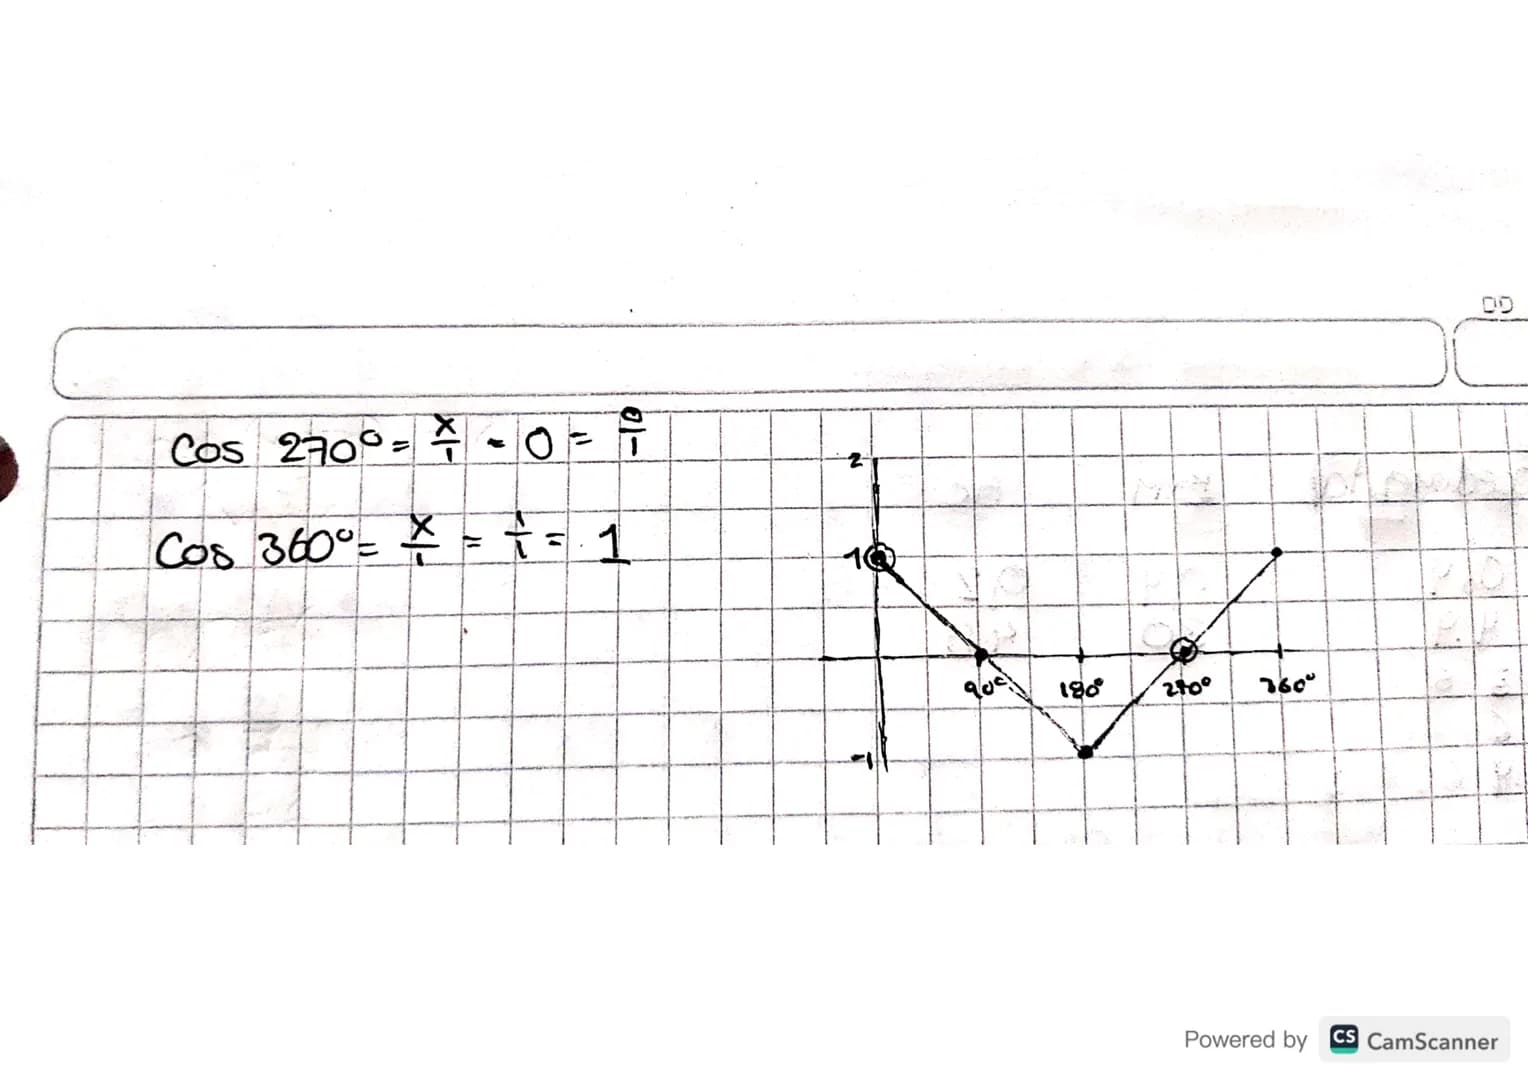 DD
Cos 270° = x/1 = 0 = 0/1
Cos 360° = x/1 = 1/1 = 1
2
1
90° 180° 270° 360°
-1
Powered by CS CamScanner